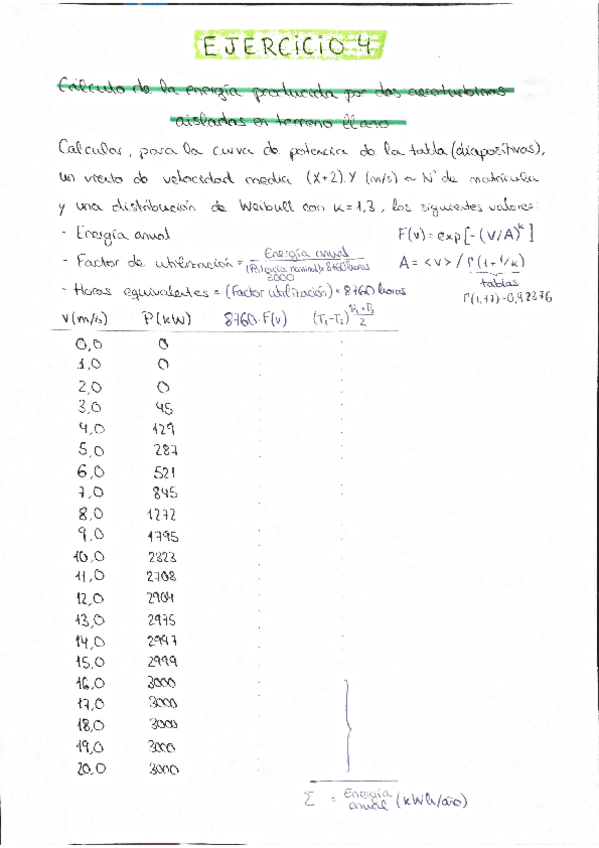 EJERCICIO 4
Cálculo de la energía producida por dos aeroturbinas
aisladas en terreno llano
Calcular, para la curva de potencia de la tabla (diapositivas),
un viento de velocidad media (X+2).Y (m/s) a Nº de matrícula
y una distribución de Weibull con k=1,3, los siguientes valores:
- Energía anual
F(v) = exp[-(V/A)^k]
- Factor de utilización = Energía anual / (Potencia nominal) × 8760 horas
3000
A = <v> / Γ(1+1/k)
tablas
- Horas equivalentes = (Factor utilización) × 8760 horas
Γ(1,77) = 0,92376
v(m/s) P(kW) 8760·F(v) (T₁-T₂) P₁+P₂/2
0,0 0
1,0 0
2,0 0
3,0 45
4,0 129
5,0 287
6,0 521
7,0 845
8,0 1272
9,0 1795
10,0 2323
11,0 2708
12,0 2904
13,0 2975
14,0 2997
15,0 2999
16,0 3000
17,0 3000
18,0 3000
19,0 3000
20,0 3000
Σ = Energía anual (kWh/año)